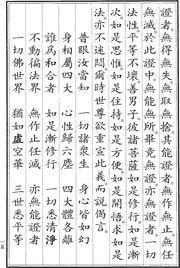 證者無得無失無取無捨其能證者無作無止無任
無滅於此證中無能無所畢竟無證亦無證者一切
法性平等不壞善男子彼諸菩薩如是修行如是漸
次如是思惟如是住持如是方便如是開悟求如是
法亦不迷悶爾時世尊欲重宣此義而說偈言
普眼汝當知 一切諸眾生 身心皆如幻
身相屬四大 心性歸六塵 四大體各離
誰為和合者 如是漸修行 一切悉清淨
不動徧法界 無作止任滅 亦無能證者
一切佛世界 猶如虛空華 三世悉平等